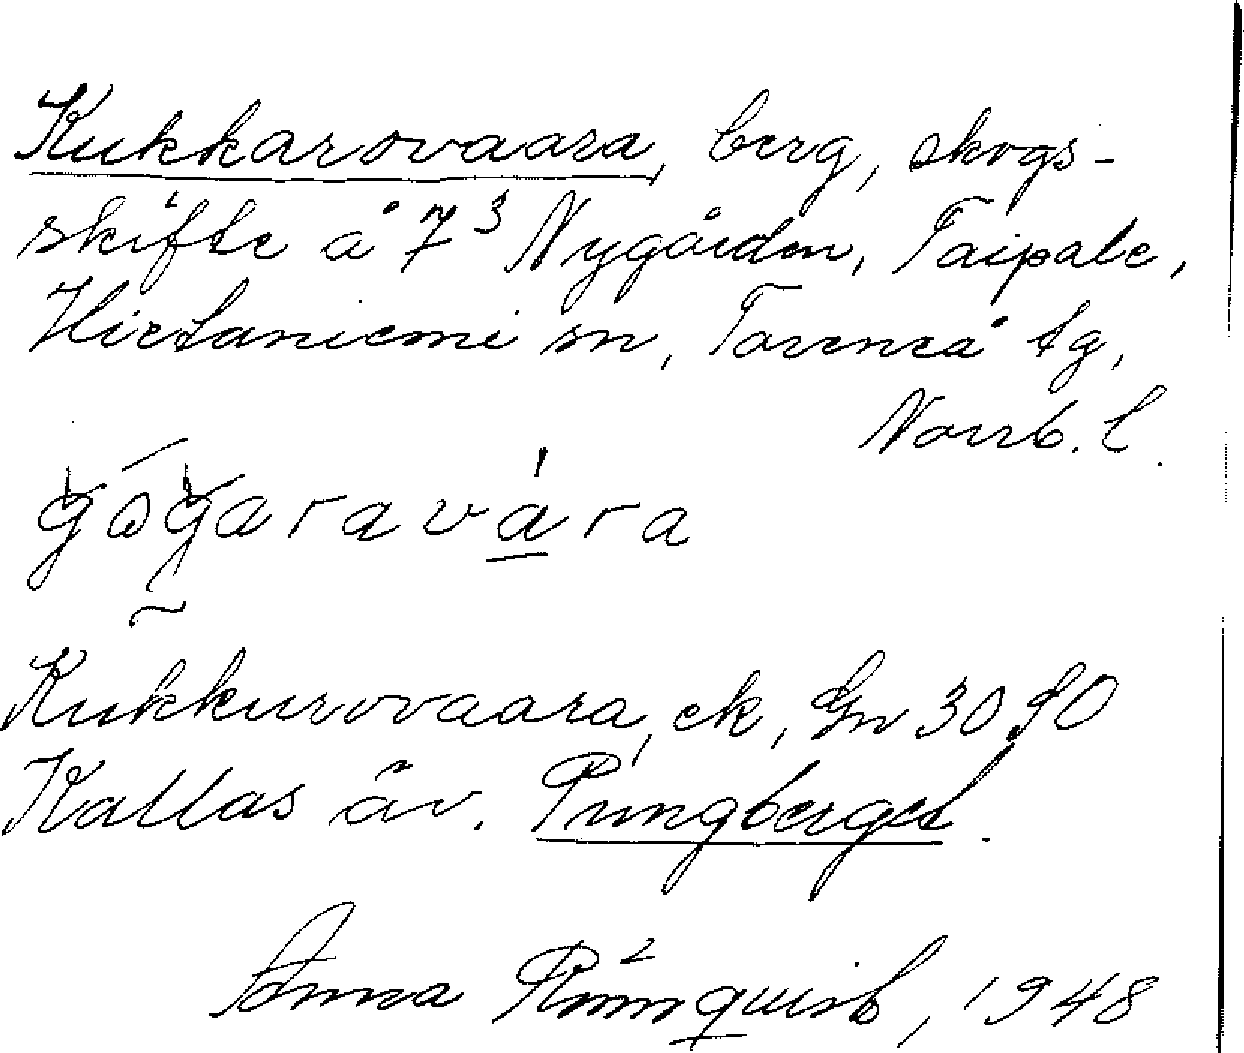 Kukkarovaara, berg, skogs-
skifte å 7³ Nygården, Taipale,
Hietaniemi sn, Torneå tg,
Norrb. l.
gògaravára
Kukkurovaara, ek, Gn 3090
Kallas äv. Pungberget.
Anna Rönnquist, 1948